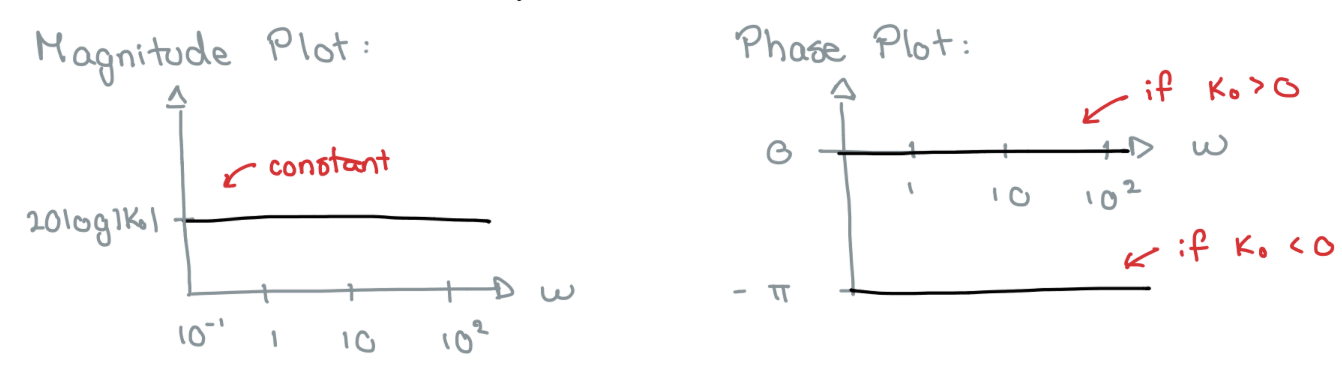 Magnitude Plot:
constant
20log|K₀|
ω
10⁻¹ 1 10 10²
Phase Plot:
if K₀ > 0
0
ω
1 10 10²
if K₀ < 0
- π